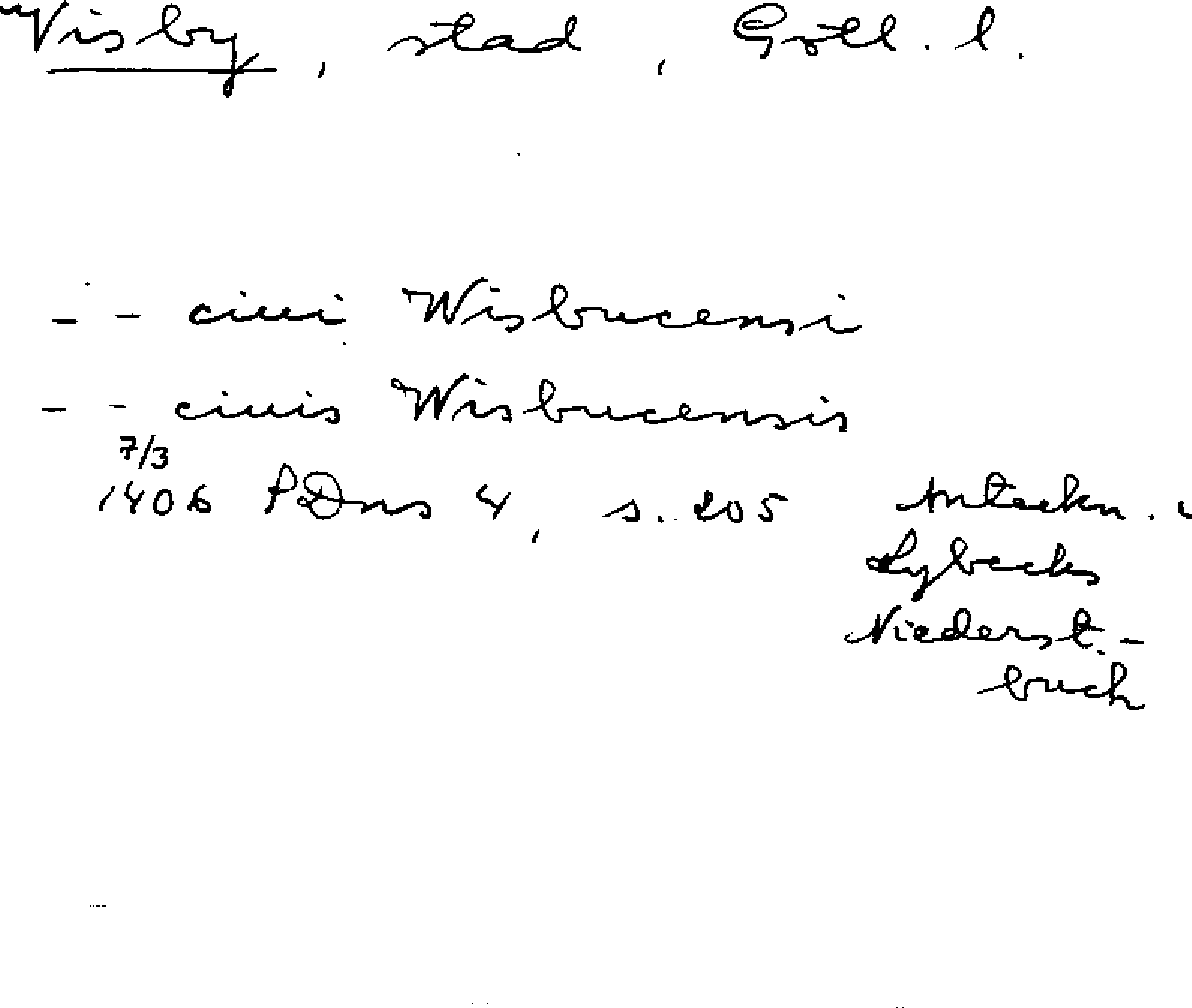 Visby, stad, Gotl. l.
- - ciui Wisbucensi
- - ciuis Wisbucensis
7/3
1406 SDns 4, s. 205 Anteckn. i
Lybecks
Niederst.-
buch